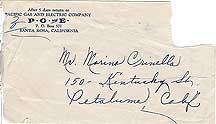 After 5 days return to
PACIFIC GAS AND ELECTRIC COMPANY
P·G·and·E·
P. O. Box 571
SANTA ROSA, CALIFORNIA
Mr. Marino Crinella
150 - Kentucky St.
Petaluma, Calif